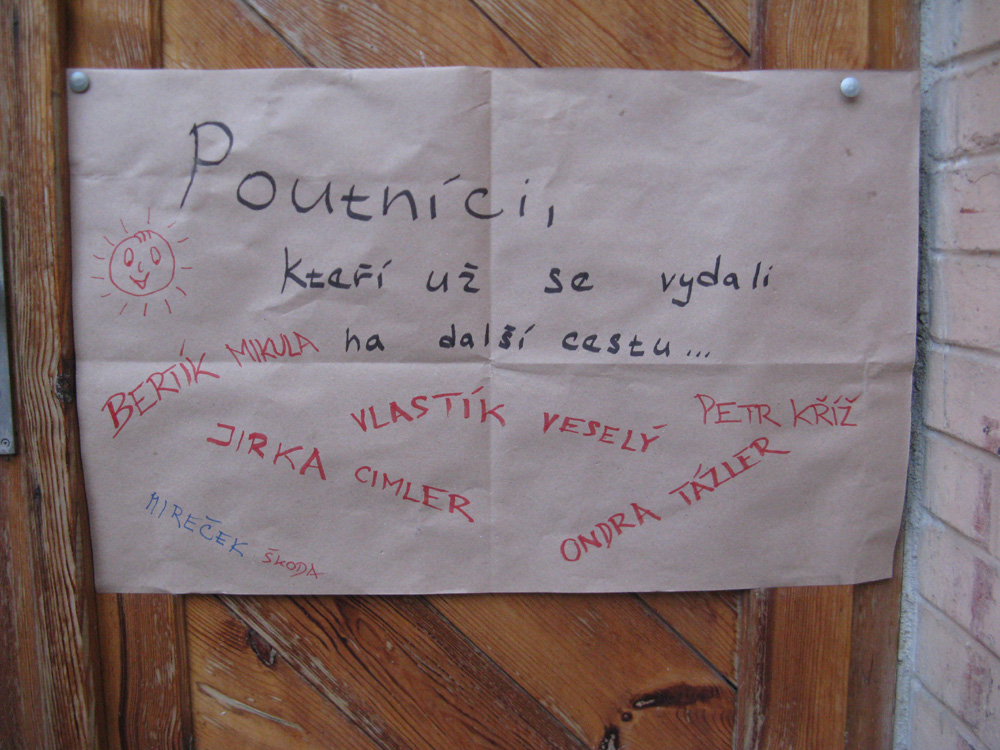 Poutníci,
kteří už se vydali
na další cestu...
BERTÍK MIKULA
VLASTÍK VESELÝ
PETR KŘÍŽ
JIRKA CIMLER
ONDRA TÁZLER
MIREČEK ŠKODA